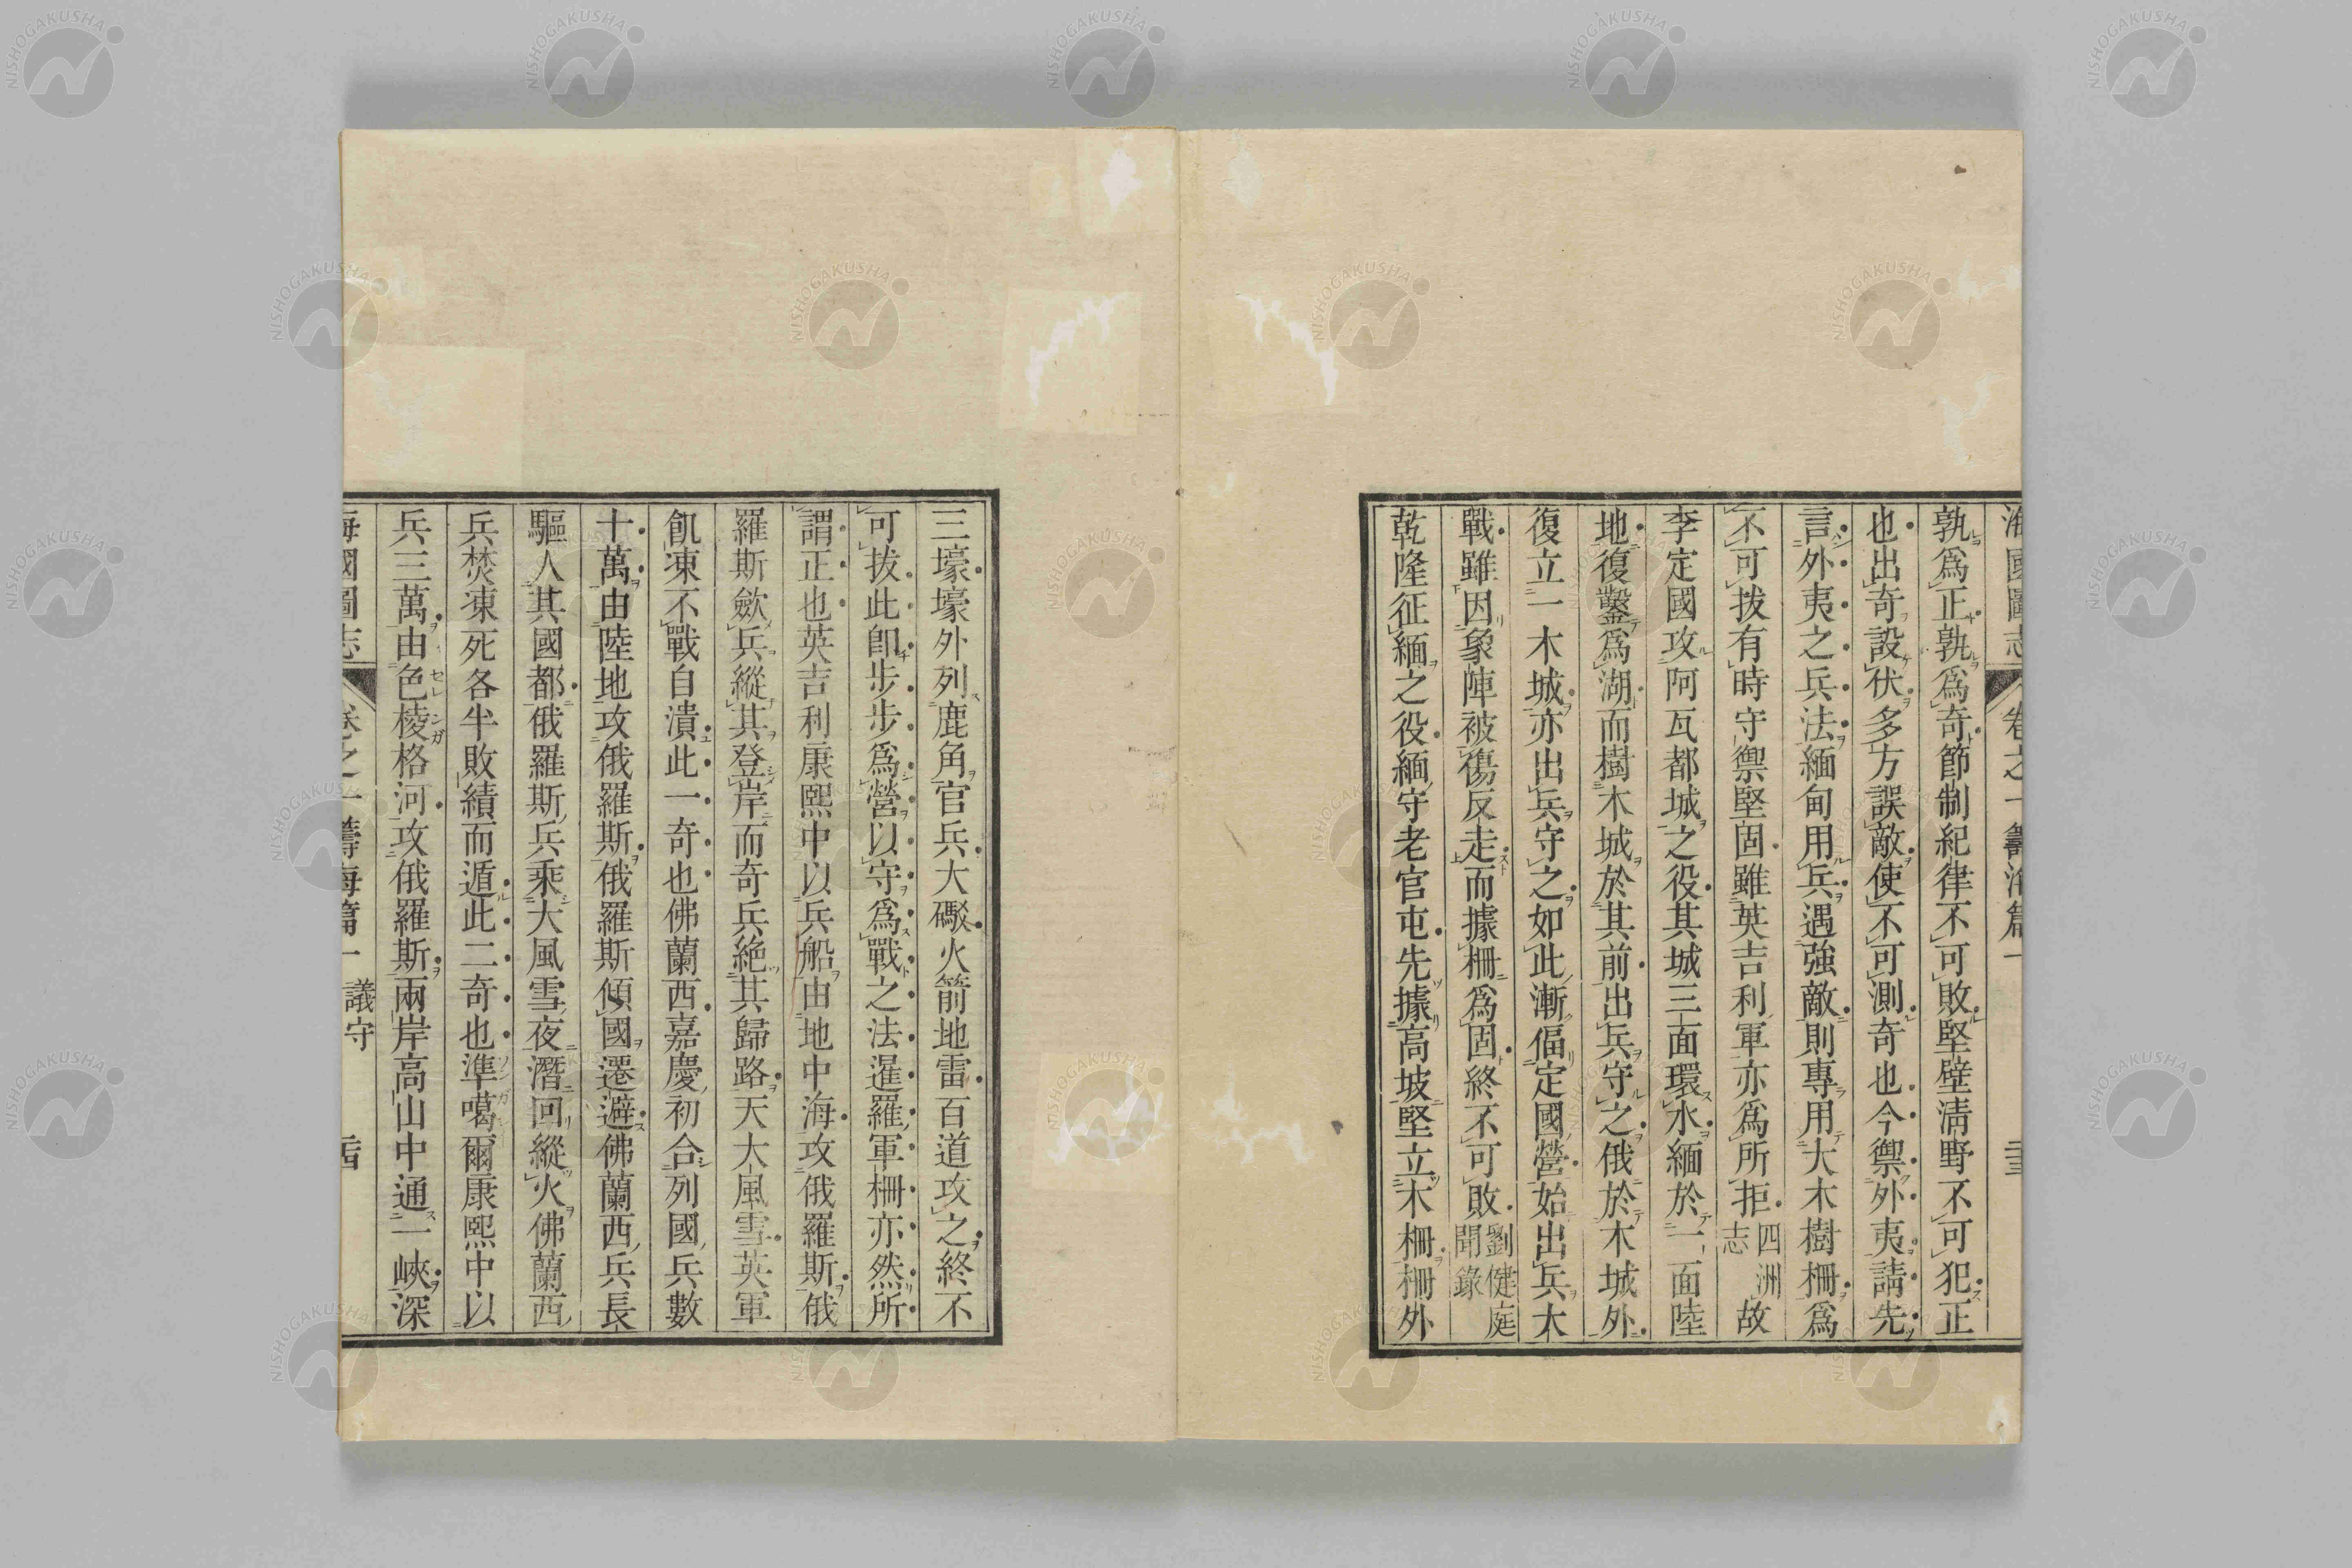 海國圖志 卷之一籌海篇一
孰爲正孰爲奇節制紀律不可敗堅壁淸野不可犯正
也出奇設伏多方誤敵使不可測奇也今禦外夷請先
言外夷之兵法緬甸用兵遇強敵則專用大木樹柵爲
不可拔有時守禦堅固雖英吉利軍亦爲所拒四洲志故
李定國攻阿瓦都城之役其城三面環水緬於一面陸
地復鑿爲湖而樹木城於其前出兵守之俄於木城外
復立一木城亦出兵守之如此漸偪定國營始出兵大
戰雖因象陣被傷反走而據柵爲固終不可敗劉健庭聞錄
乾隆征緬之役緬守老官屯先據高坡堅立木柵柵外
三壕壕外列鹿角官兵大礮火箭地雷百道攻之終不
可拔此卽步步爲營以守爲戰之法暹羅軍柵亦然所
謂正也英吉利康熙中以兵船由地中海攻俄羅斯俄
羅斯斂兵縱其登岸而奇兵絶其歸路天大風雪英軍
飢凍不戰自潰此一奇也佛蘭西嘉慶初合列國兵數
十萬由陸地攻俄羅斯俄羅斯傾國遷避佛蘭西兵長
驅人其國都俄羅斯兵乘大風雪夜潛回縱火佛蘭西
兵焚凍死各半敗績而遁此二奇也準噶爾康熙中以
兵三萬由色棱格河攻俄羅斯兩岸高山中通一峽深
海國圖志 卷之一籌海篇一 議守
NISHOGAKUSHA